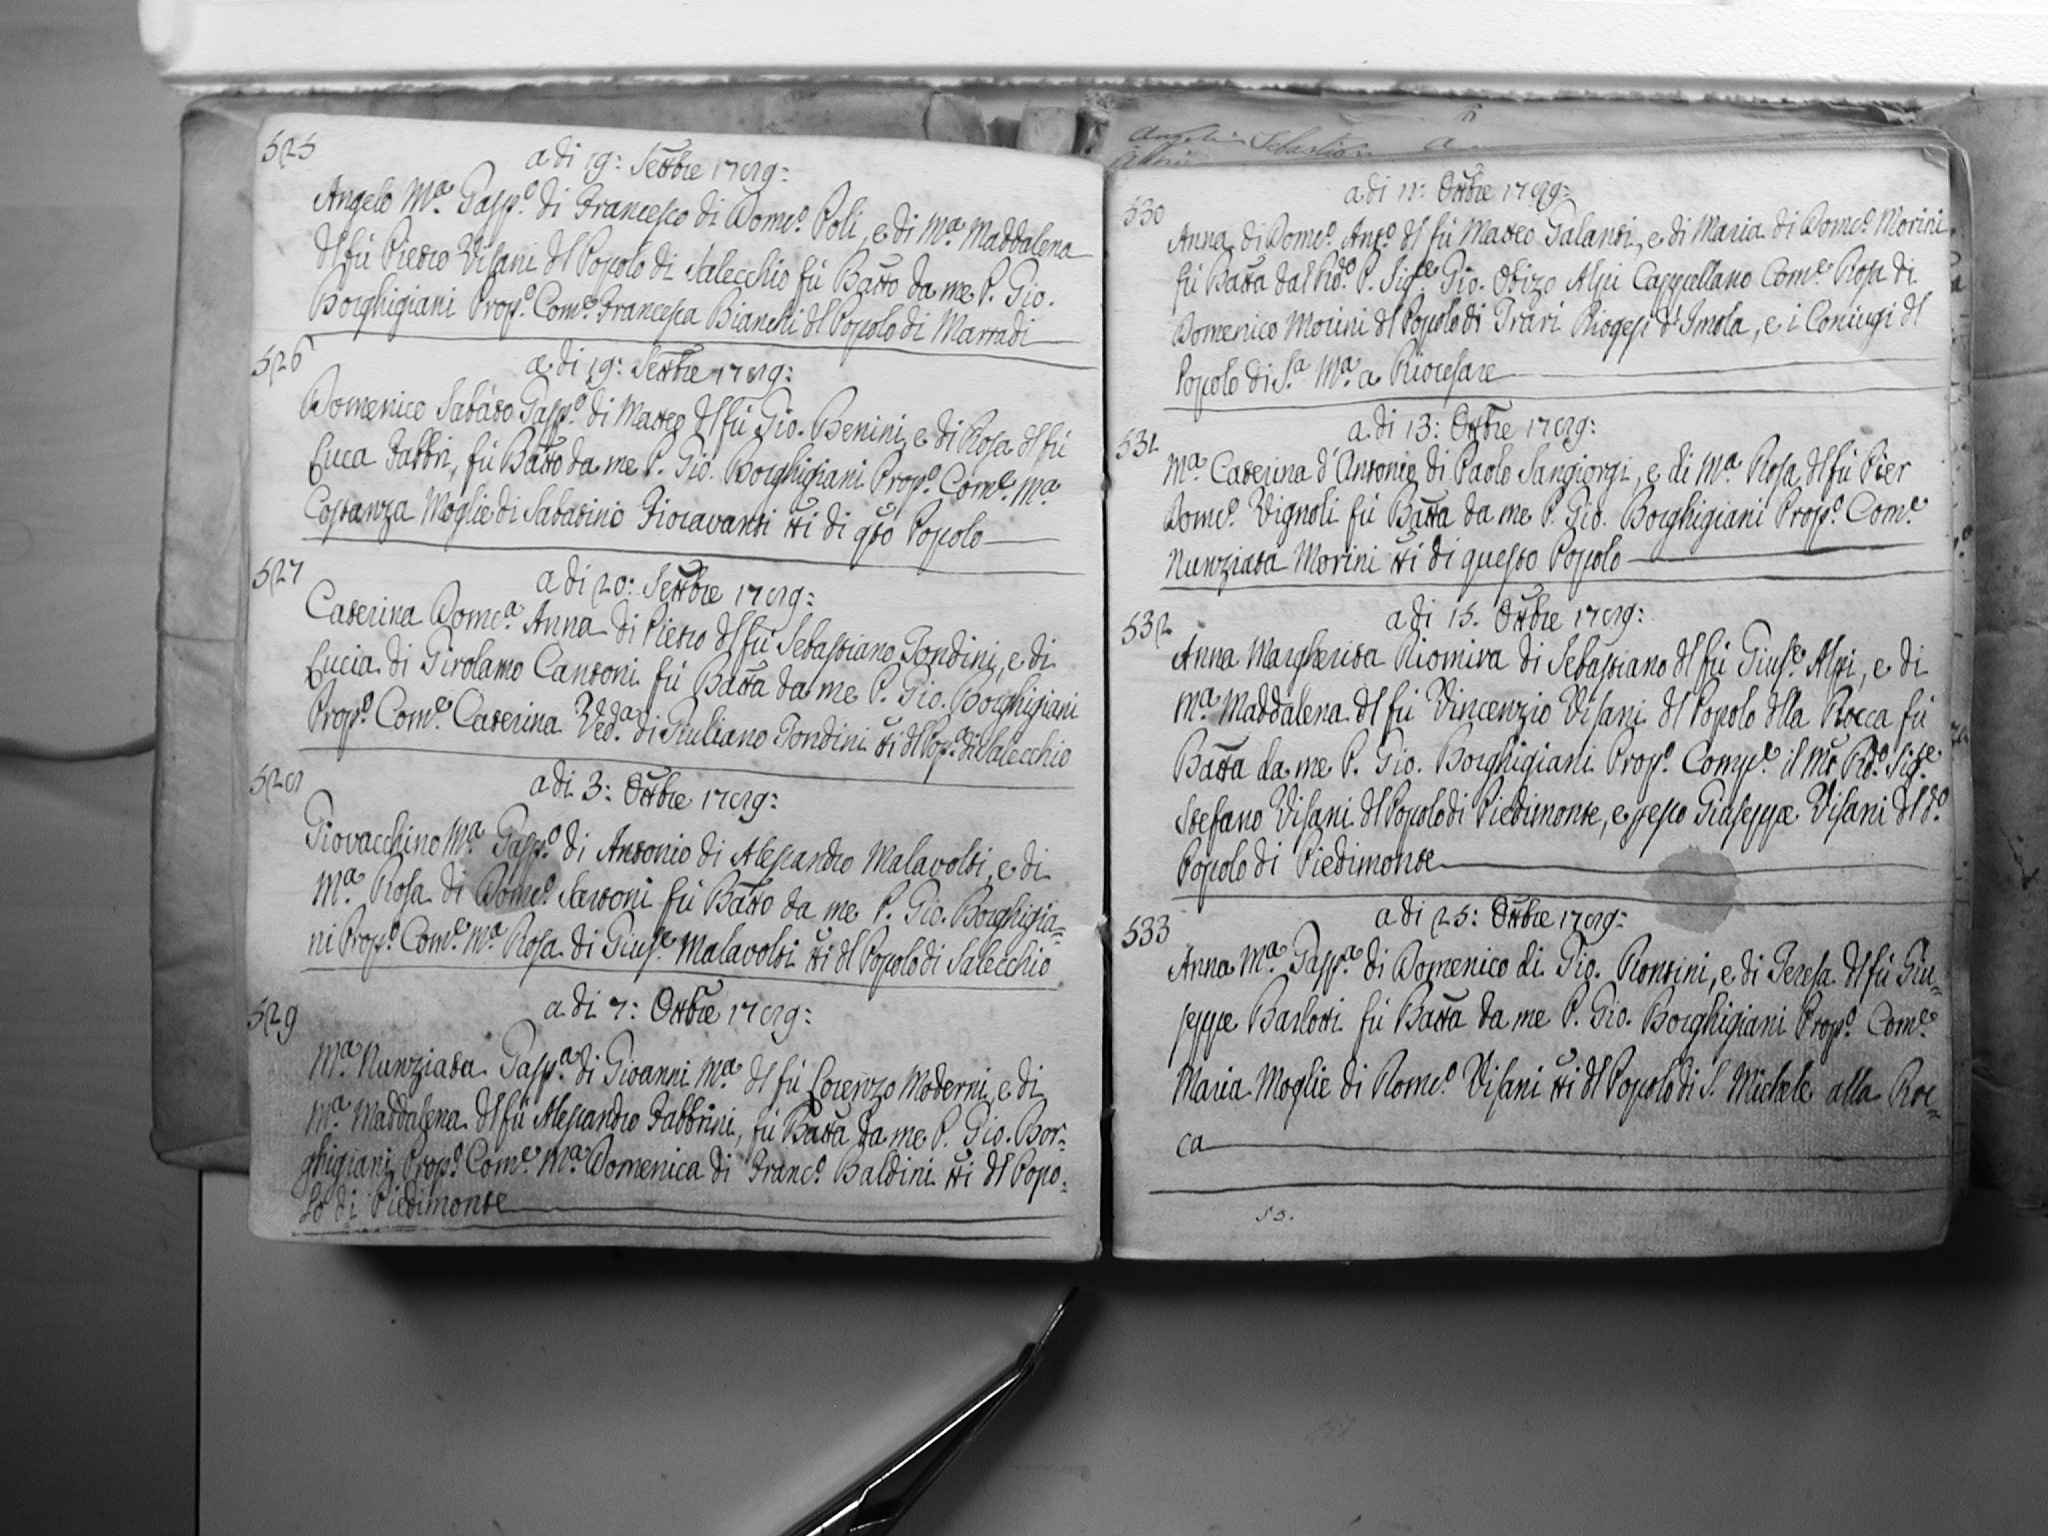 525
a di 19: Settbre 1789:
Angelo Ma. Gasp.o di Francesco di Domc.o Poli, e di Ma. Maddalena
dl fù Pietro Visani dl Popolo di Salecchio fù Batto da me P. Gio.
Borghigiani Prop.o Com.e Francesca Bianchi dl Popolo di Marradi
526
a di 19: Settbre 1789:
Domenico Sabato Gasp.o di Matteo dl fù Gio. Benini, e di Rosa dl fù
Luca Fabbri, fù Batto da me P. Gio. Borghigiani Prop.o Com.e Ma.
Costanza Moglie di Sabatino Fioravanti tti di qto Popolo
527
a di 20: Settbre 1789:
Caterina Domc.a Anna di Pietro dl fù Sebastiano Tondini, e di
Lucia di Girolamo Cantoni fù Batta da me P. Gio. Borghigiani
Prop.o Com.e Caterina Ved.a di Giuliano Tondini tti dl Pop.o di Salecchio
528
a di 3: Ottbre 1789:
Giovacchino Ma. Gasp.o di Antonio di Alessandro Malavolti, e di
Ma. Rosa di Domc.o Sartoni fù Batto da me P. Gio. Borghigia=
ni Prop.o Com.e Ma. Rosa di Gius.e Malavolti tti dl Popolo di Salecchio
529
a di 7: Ottbre 1789:
Ma. Nunziata Gasp.a di Giovanni Ma. dl fù Lorenzo Moderni, e di
Ma. Maddalena dl fù Alessandro Fabbrini, fù Batta da me P. Gio. Bor=
ghigiani Prop.o Com.e Ma. Domenica di Franc.o Baldini tti dl Popo=
lo di Piedimonte
530
a di 11: Ottbre 1789:
Anna di Domc.o Ant.o dl fù Matteo Galanti, e di Maria di Domc.o Morini
fù Batta dal Rdo. P. Sig.e Gio. Obizo Alpi Cappellano Com.e Rosa di
Domenico Morini dl Popolo di Diogesi d'Imola, e i Coniugi dl
Popolo di S.a Ma. a Riocesare
531
a di 13: Ottbre 1789:
Ma. Caterina d'Antonio di Paolo Sangiorgi, e di Ma. Rosa dl fù Pier
Domc.o Vignoli fù Batta da me P. Gio. Borghigiani Prop.o Com.e
Nunziata Morini tti di questo Popolo
532
a di 15. Ottbre 1789:
Anna Margherita Diomira di Sebastiano dl fù Gius.e Alpi, e di
Ma. Maddalena dl fù Vincenzio Visani dl Popolo dlla Rocca fù
Batta da me P. Gio. Borghigiani Prop.o Comp.e il Mt. Rdo. Sig.e
Stefano Visani dl Popolo di Piedimonte, e p esso Giuseppe Visani dl do.
Popolo di Piedimonte
533
a di 25: Ottbre 1789:
Anna Ma. Gasp.a di Domenico di Gio. Rontini, e di Teresa dl fù Giu=
seppe Barlotti fù Batta da me P. Gio. Borghigiani Prop.o Com.e
Maria Moglie di Domc.o Visani tti dl Popolo di S. Michele alla Roc=
ca
53.